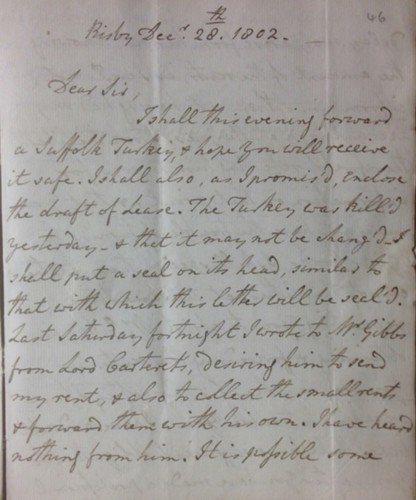 46
th
Risby Decr. 28. 1802.
Dear Sir,
I shall this evening forward
a Suffolk Turkey, & hope you will receive
it safe. I shall also, as I promis'd, enclose
the draft of Lease. The Turkey was kill'd
yesterday – & that it may not be chang'd – I
shall put a seal on its head, similar to
that with which this letter will be seal'd.
Last Saturday fortnight I wrote to Mr. Gibbs
from Lord Carterets, desiring him to send
my rent, & also to collect the small rents
& forward them with his own. I have heard
nothing from him. It is possible some